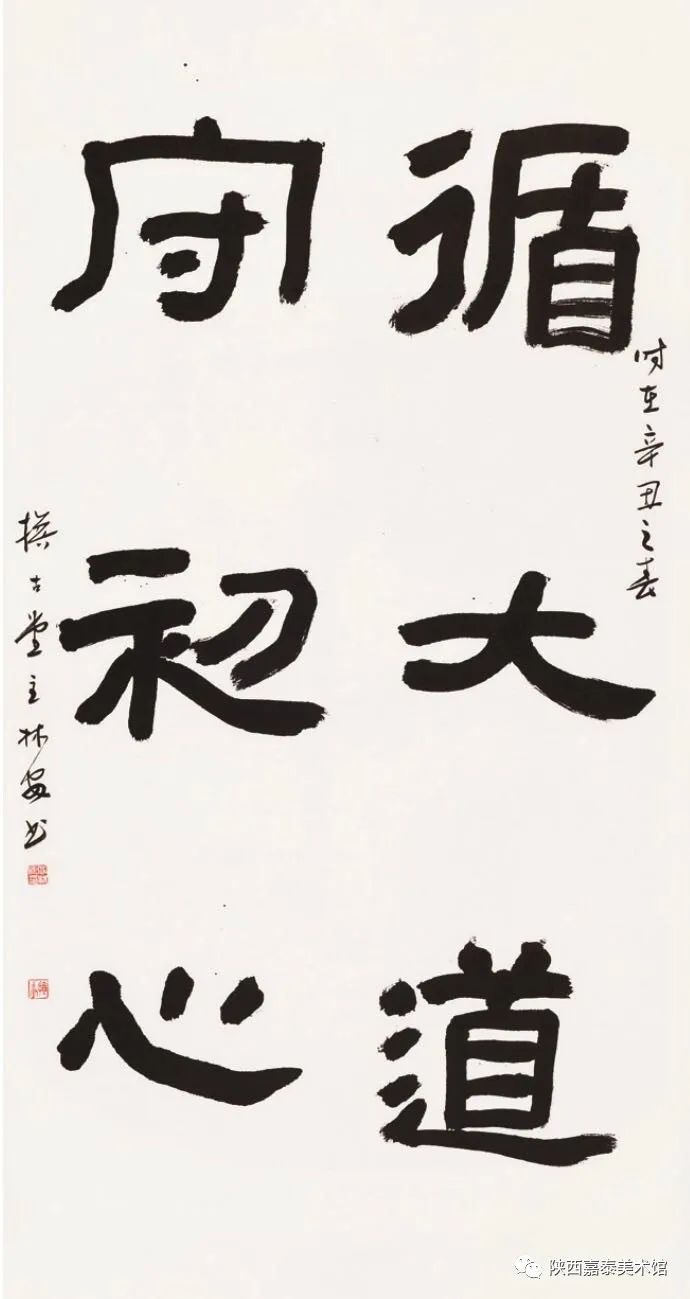 循大道
守初心
时在辛丑之春
撰古堂主林安书
陕西嘉泰美术馆